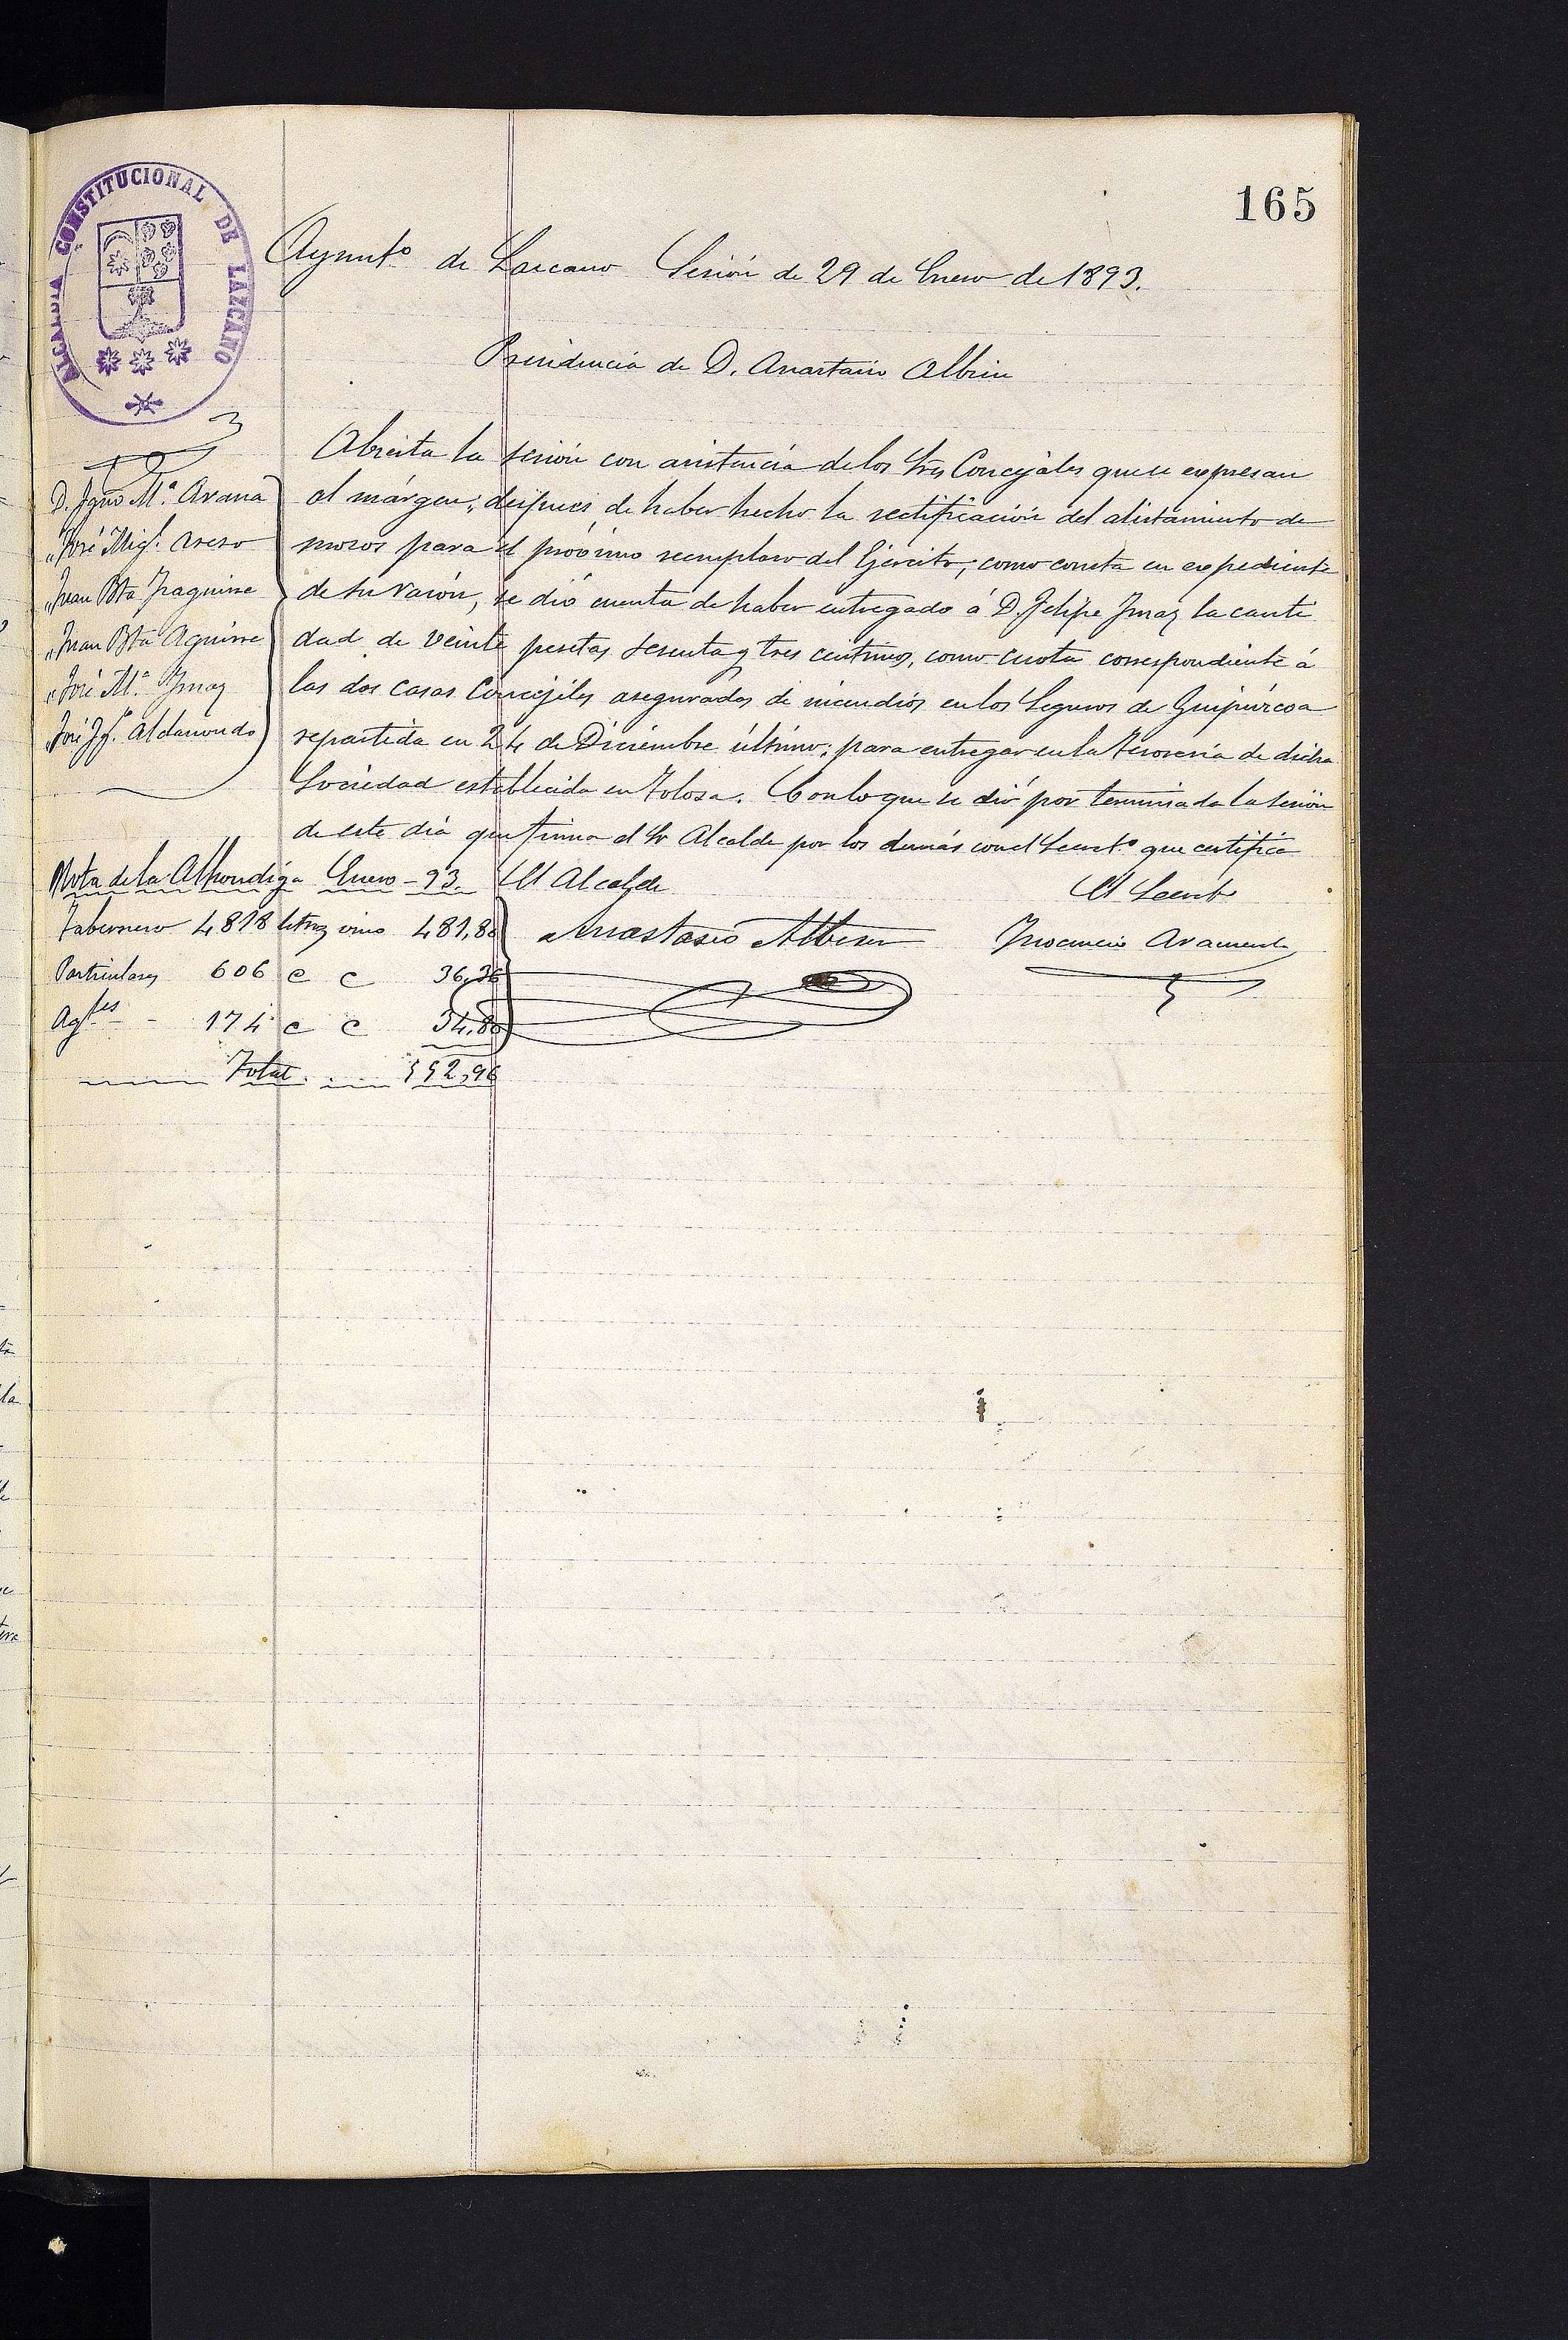 165
ALCALDIA CONSTITUCIONAL DE LAZCANO
Ayumtº de Lazcano Sesión de 29 de Enero de 1893.
Presidencia de D. Anastasio Albisu
D. Igno Mª Arana
" José Migl. Areso
" Juan Bta Iraguirre
" Juan Bta Aguirre
" José Mª Imaz
" José Igº Aldasoro
Abierta la sesión con asistencia de los Sres Concejales que se expresan
al márgen; después de haber hecho la rectificación del alistamiento de
mozos para el próximo reemplazo del Ejercito, como consta en expediente
de su razón, se dió cuenta de haber entregado á D. Felipe Imaz la canti
dad de veinte pesetas sesenta y tres centimos, como cuota correspondiente á
las dos casas Concejiles aseguradas de incendios en los Seguros de Guipúzcoa
repartida en 24 de Diciembre último; para entregar en la tesorería de dicha
Sociedad establecida en Tolosa. Con lo que se dió por terminada la sesión
de este dia que firma el Sr Alcalde por los demás con el Secretº que certifica
El Alcalde El Secretº
Anastasio Albisu Inocencio
Nota de la Alhondiga Enero - 93.
Tabernero 4818 litros vino 481,80
Particulares 606 c c 36,36
Agtes - 174 c c 34,80
Total 552,96